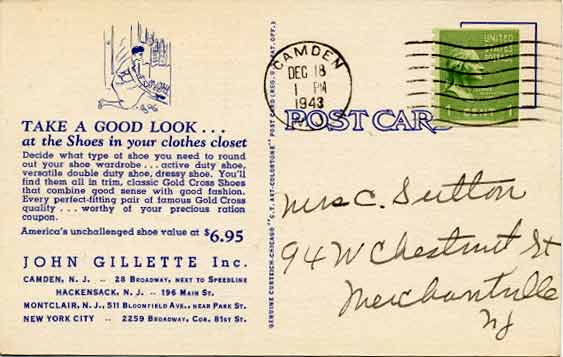 TAKE A GOOD LOOK . . .
at the Shoes in your clothes closet
Decide what type of shoe you need to round
out your shoe wardrobe . . . active duty shoe,
versatile double duty shoe, dressy shoe. You'll
find them all in trim, classic Gold Cross Shoes
that combine good sense with good fashion.
Every perfect-fitting pair of famous Gold Cross
quality . . . worthy of your precious ration
coupon.
America's unchallenged shoe value at $6.95
JOHN GILLETTE Inc.
CAMDEN, N. J. -- 28 BROADWAY, NEXT TO SPEEDLINE
HACKENSACK, N. J. -- 196 MAIN ST.
MONTCLAIR, N. J., 511 BLOOMFIELD AVE., NEAR PARK ST.
NEW YORK CITY -- 2259 BROADWAY, COR. 81ST ST.
GENUINE CURTEICH-CHICAGO "C.T. ART-COLORTONE" POST CARD (REG. U.S. PAT. OFF.)
CAMDEN
DEC 18
1 PM
1943
POST CARD
UNITED
STATES
POSTAGE
1 CENT 1
Mrs C. Sutton
94 W Chestnut St
Merchantville
NJ